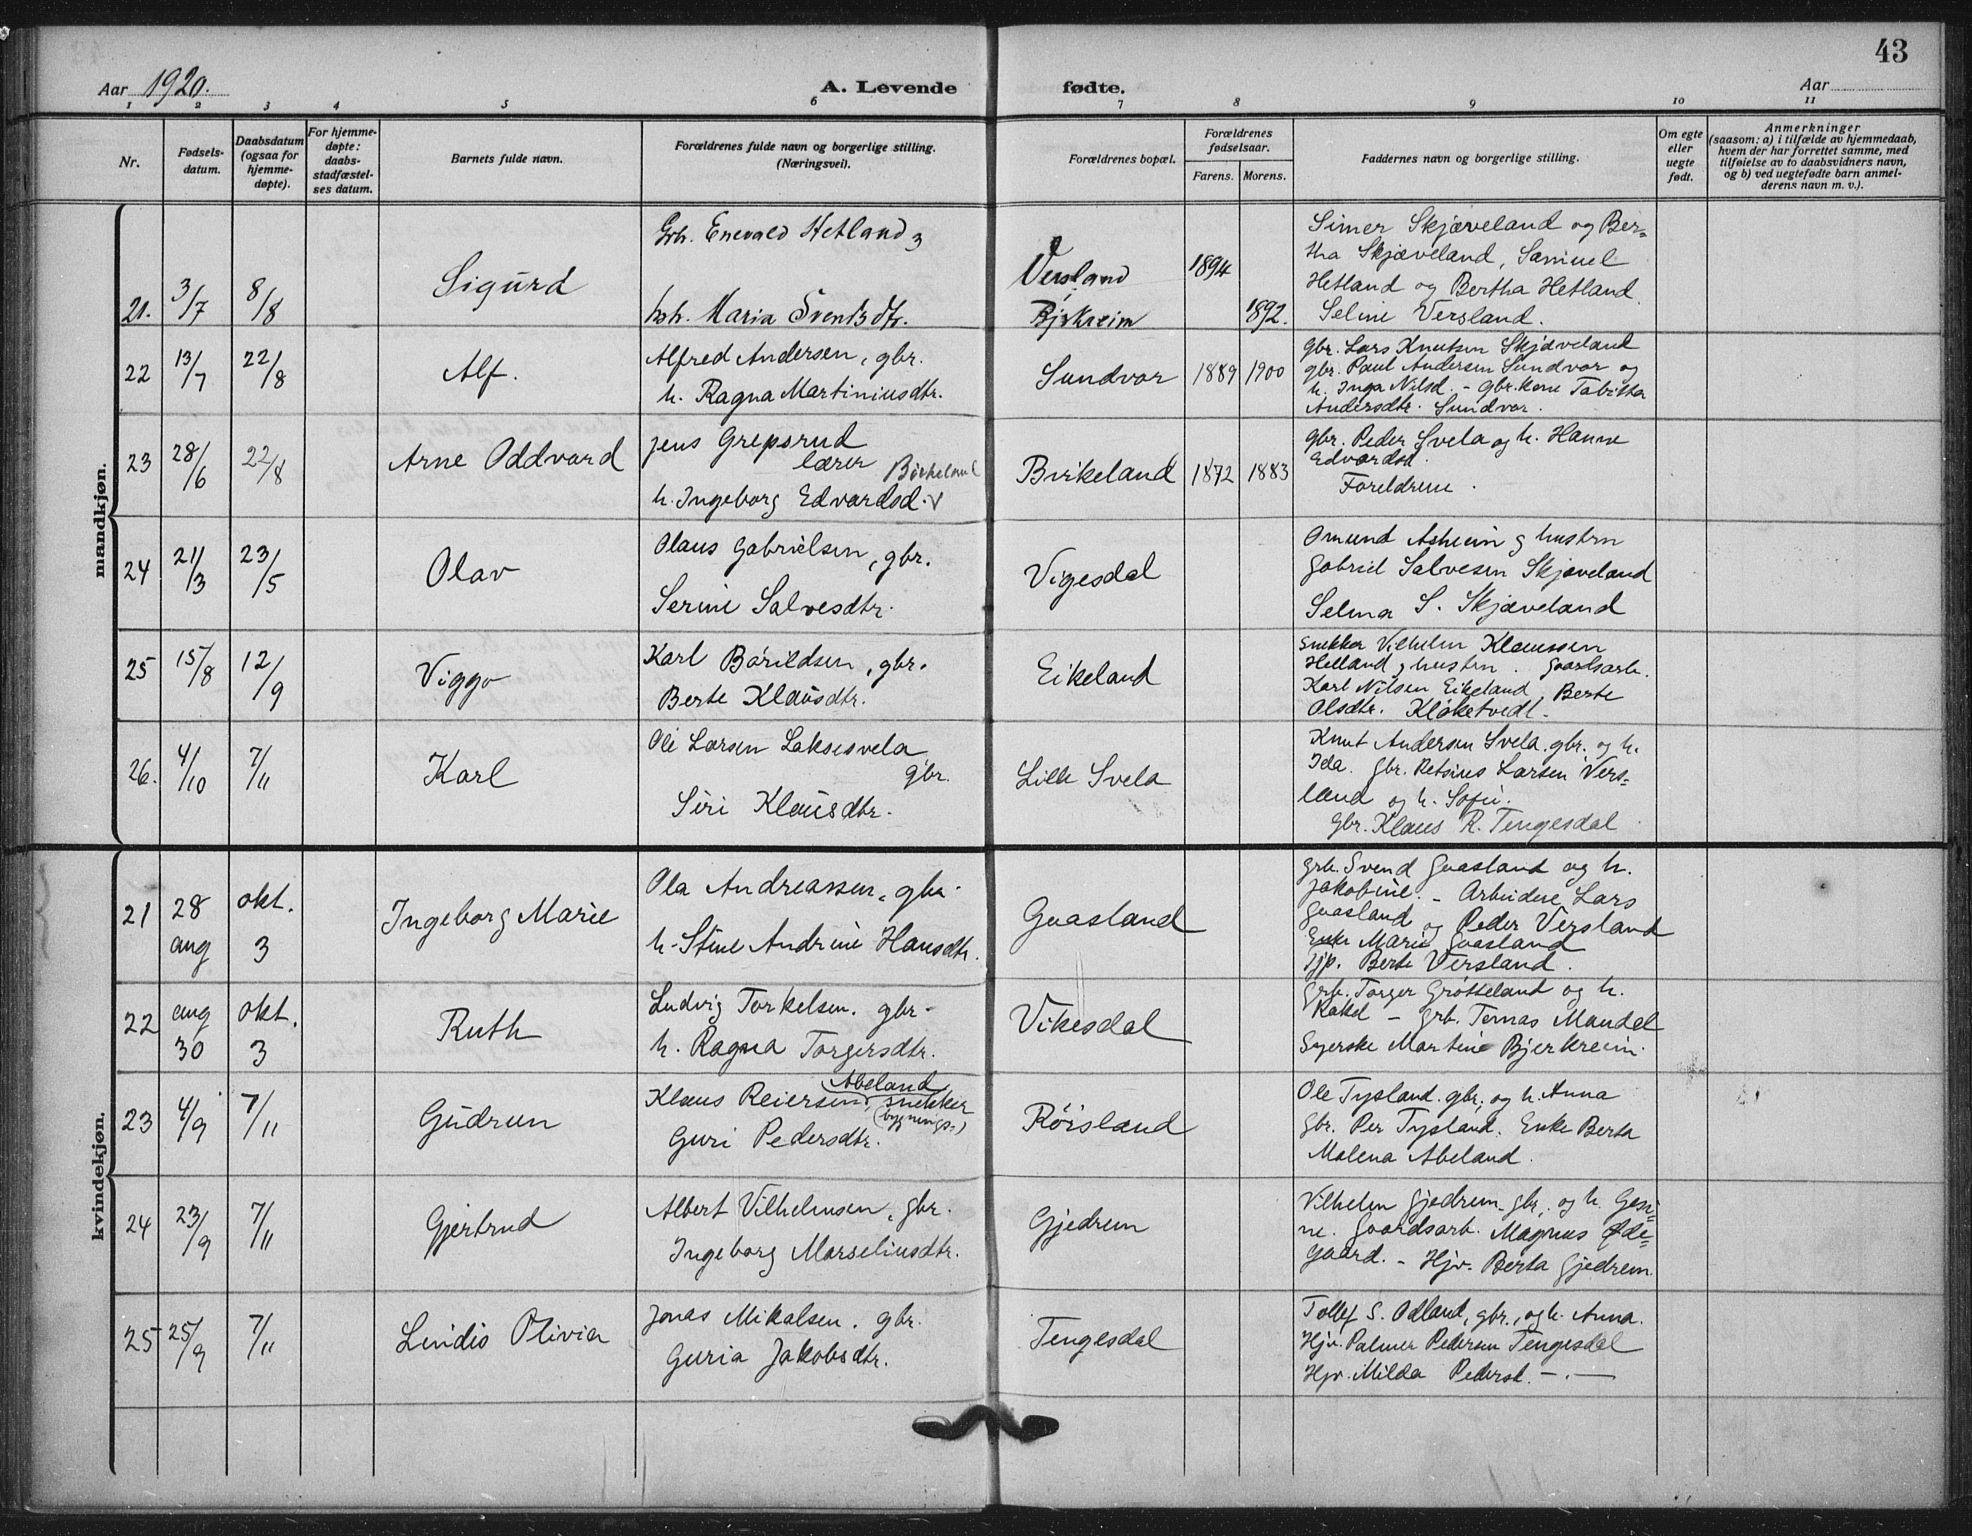 43
Aar 1920.
A. Levende fødte.
Aar
1 2 3 4 5 6 7 8 9 10 11
Nr.
Fødsels-
datum.
Daabsdatum
(ogsaa for
hjemme-
døpte).
For hjemme-
døpte:
daabs-
stadfæstel-
ses datum.
Barnets fulde navn.
Forældrenes fulde navn og borgerlige stilling.
(Næringsvei).
Forældrenes bopæl.
Forældrenes
fødselsaar.
Farens. Morens.
Faddernes navn og borgerlige stilling.
Om egte
eller
uegte
født.
Anmerkninger
(saasom: a) i tilfælde av hjemmedaab,
hvem der har forrettet samme, med
tilføielse av to daabsvidners navn,
og b) ved uegtefødte barn anmel-
derens navn m. v.).
mandkjøn.
21. 3/7 8/8 Sigurd
Enevald Hetland
Maria Svents dtr.
Versland
Bjerkreim
1894
1892.
Simer Skjæveland og Ber=
tha Skjæveland, Samuel
Hetland og Bertha Hetland.
Seline Versland.
22 13/7 22/8 Alf.
Alfred Andersen, gbr.
h. Ragna Martiniusdtr.
Sundvor 1889 1900
gbr. Lars Knutsen Skjæveland
gbr. Paul Andersen Sundvor og
h. Inga Nilsd. - gbr. kone Tabitha
Andersdtr. Sundvor.
23 28/6 22/8 Arne Oddvard
Jens Grepsrud
lærer Birkeland
h. Ingeborg Edvardsd.
Birkeland 1872 1883
gbr. Peder Svela og h. Hanne
Edvardsd.
Foreldrene.
24 21/3 23/5 Olav
Olaus Gabrielsen, gbr.
Serine Salvesdtr.
Vigesdal
Omund Asheim og hustru
Gabriel Salvesen Skjæveland
Selma S. Skjæveland
25 15/8 12/9 Viggo
Karl Bårildsen, gbr.
Berte Klausdtr.
Eikeland
Snekker Vilhelm Klaussen
Helland og hustru. Gaardsarb.
Karl Nilsen Eikeland, Berte
Olsdtr. Kløketvedt.
26. 4/10 7/11 Karl
Ole Larsen Laksesvela
gbr.
Siri Klausdtr.
Lille Svela
Knut Andersen Svela. gbr. og h.
Ida. gbr. Retsius Larsen Vers=
land og h. Sofie.
Gbr. Klaus R. Tengesdal.
kvindekjøn.
21 28 aug okt. 3 Ingeborg Marie
Ola Andreassen, gbr.
h. Stine Andrine Hansdtr.
Gvasland
grb. Svend Gvasland og h.
Jakobine. - Arbeidere Lars
Gvasland og Peder Versland
Enke Marie Gvasland
Tjp. Berte Versland.
22 aug 30 okt. 3 Ruth
Ludvig Torkelsen. gbr.
h. Ragna Torgersdtr.
Vikesdal
Grb. Torger Grøtteland og h.
Rakel - Grb. Ternas Mandal
Syerske Martine Bjerkreim.
23 4/9 7/11 Gudrun
Abeland
Klaus Reiersen, snekker
(bygnings-)
Guri Pedersdtr.
Røisland
Ole Tysland. gbr. og h. Anna
Gbr. Per Tysland. Enke Berta
Malena Abeland.
24 23/9 7/11 Gjertrud
Albert Vilhelmsen, gbr.
Ingeborg Marseliusdtr.
Gjedrem
Vilhelm Gjedrem. gbr. og h. Gesi=
ne. Gaardsarb. Magnus Øde=
gaard. - Hjv. Berta Gjedrem
25 25/9 7/11 Lindis Olivia
Jonas Mikalsen. gbr.
Guria Jakobsdtr.
Tengesdal
Tollef S. Odland, gbr., og h. Anna.
Hjv. Palmer Pedersen Tengesdal
Hjv. Milda Pedersd. - . -